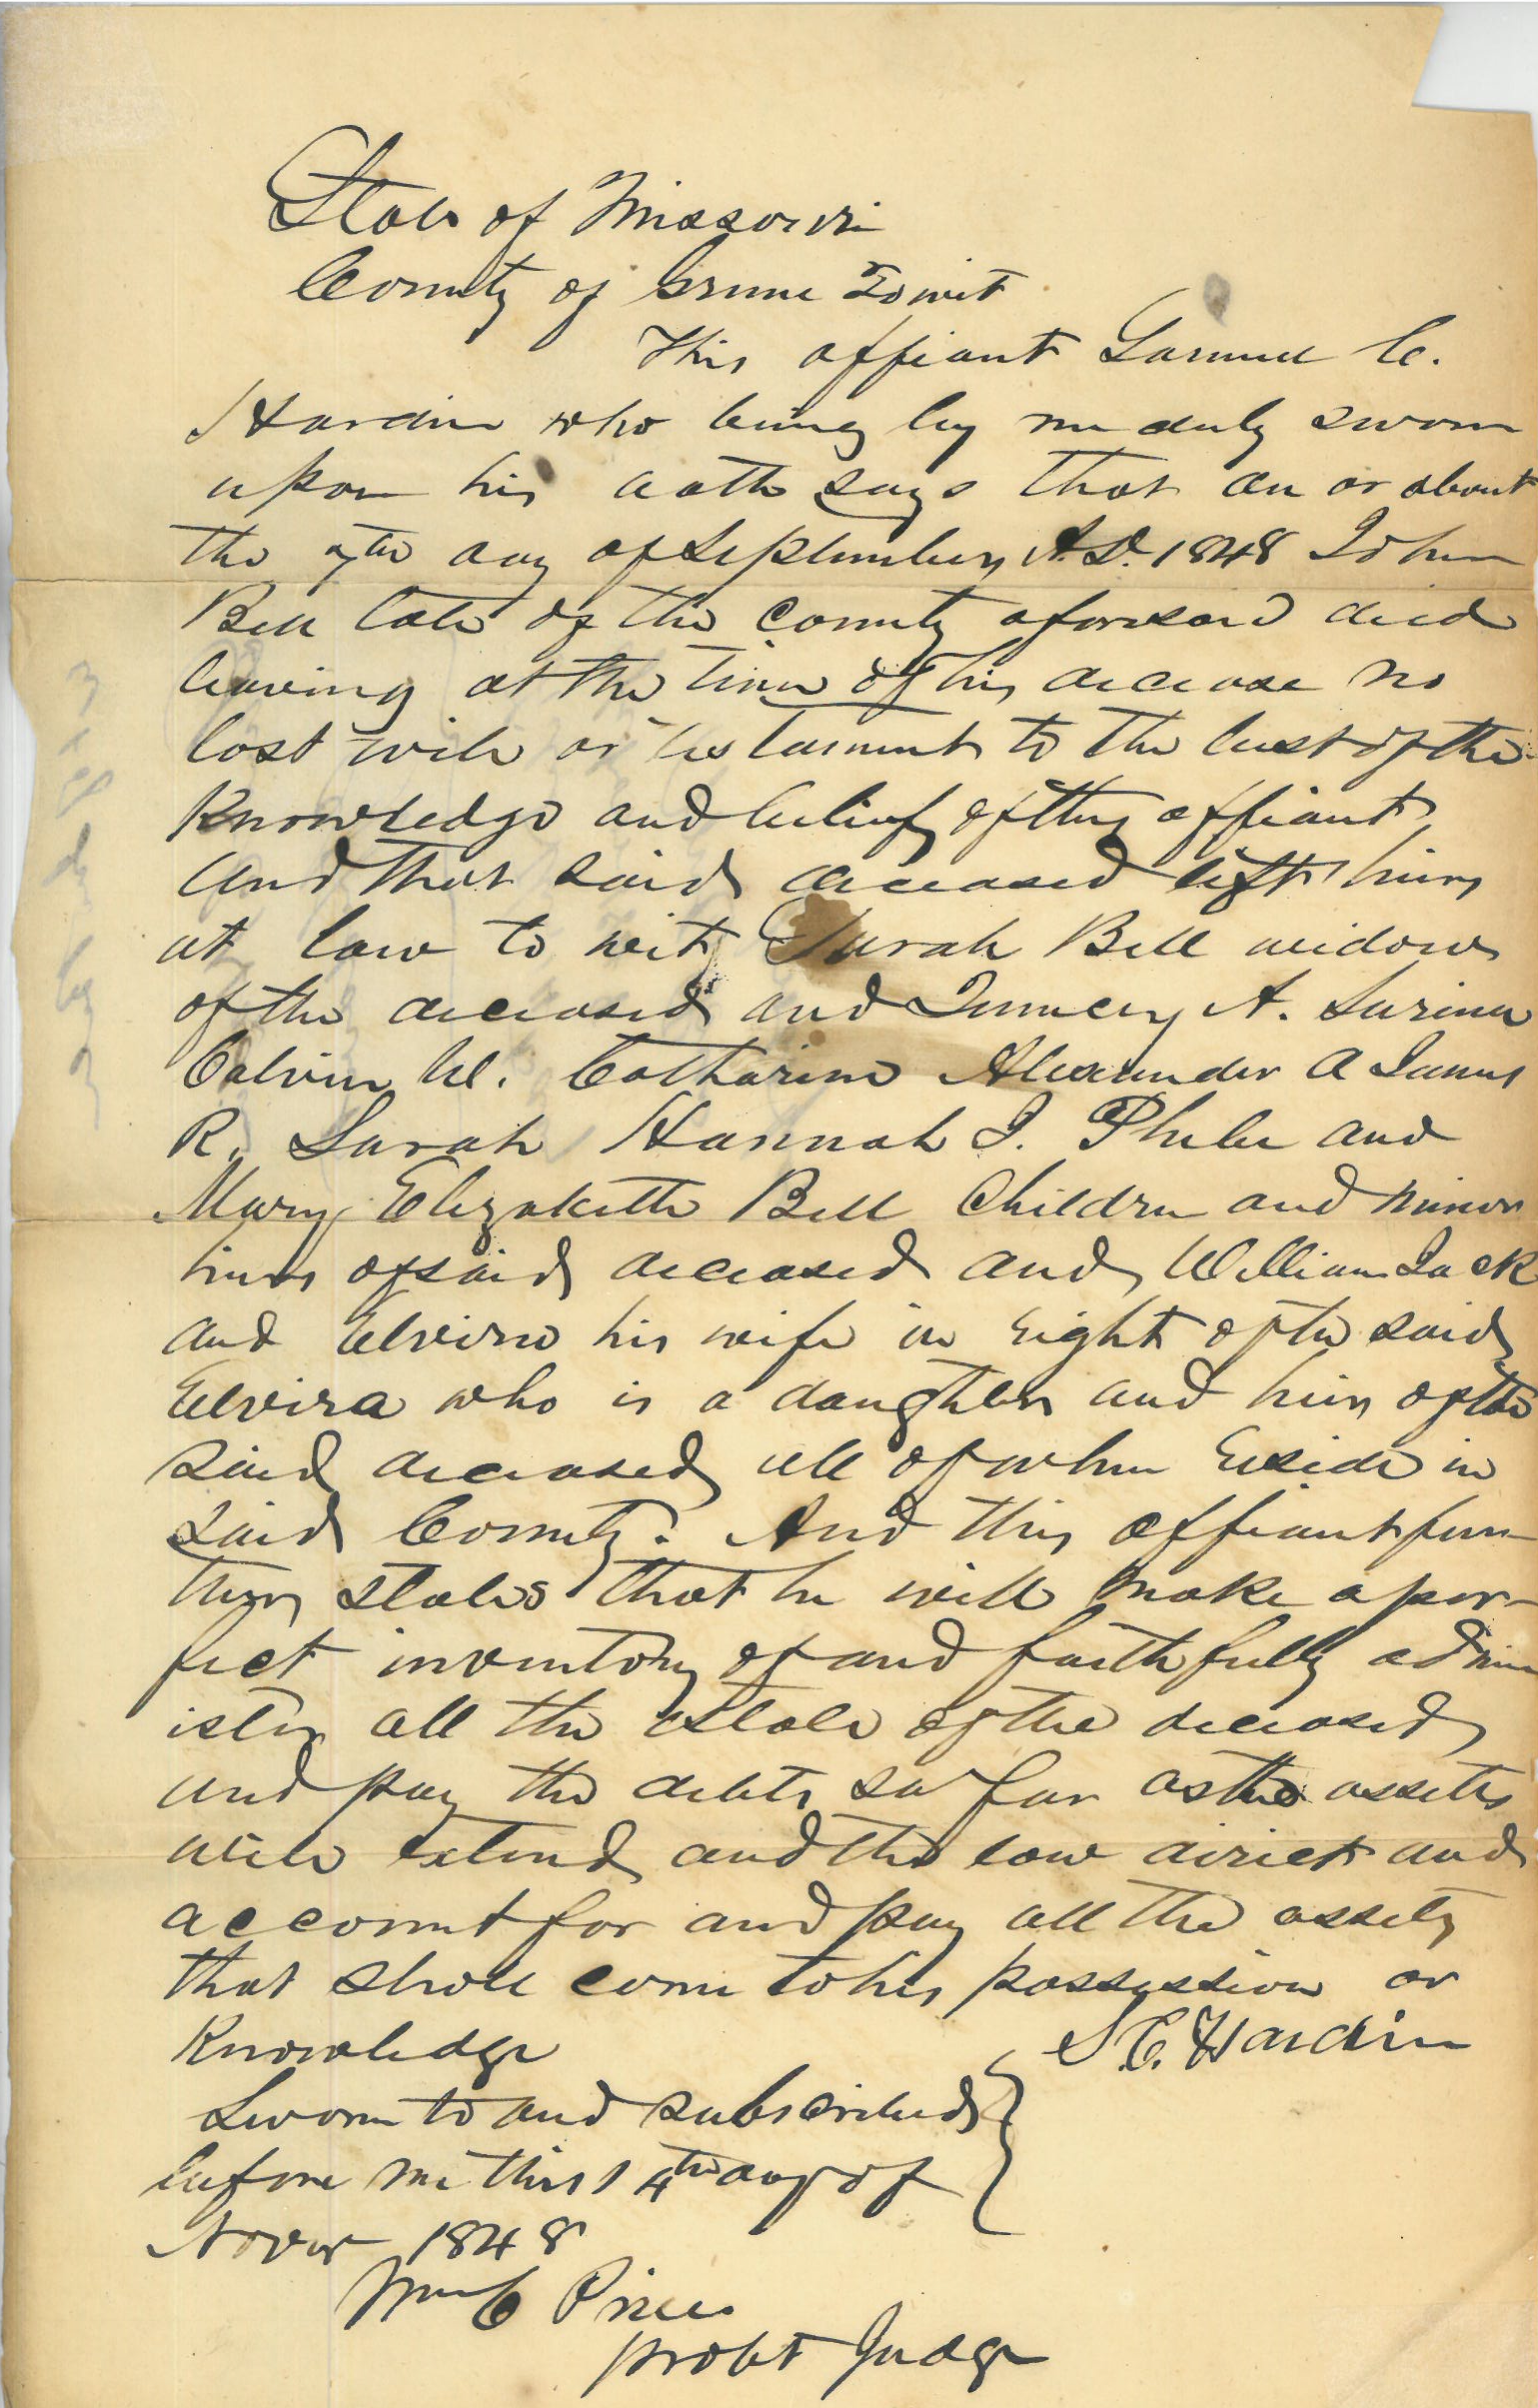 State of Missouri
County of Greene Towit
This affiant Samuel C.
Hardin who being by me duly sworn
upon his oath says that on or about
the 7th day of September A.D. 1848 John
Bell late of the County aforesaid died
leaving at the time of his decease no
last will or testament to the best of the
Knowledge and belief of this affiant
And that said deceased left heirs
at law to wit, Sarah Bell widow
of the deceased and A.
Calvin W. Catharine Alexander A James
R. Sarah Hannah J. Phebe and
Mary Elizabeth Bell Children and minor
heirs of said deceased and William Jack
and Elvira his wife in right of the said
Elvira who is a daughter and heir of the
said deceased all of whom reside in
said County. And this affiant fur-
ther states that he will make a per-
fect inventory of and faithfully admin
ister all the estate of the deceased
and pay the debts so far as the assets
will extend and the law direct and
account for and pay all the assets
that shall come to his possession or
Knowledge
S. C. Hardin
Sworn to and subscribed
before me this 14th day of
Novr 1848
Wm C Price
Probt Judge